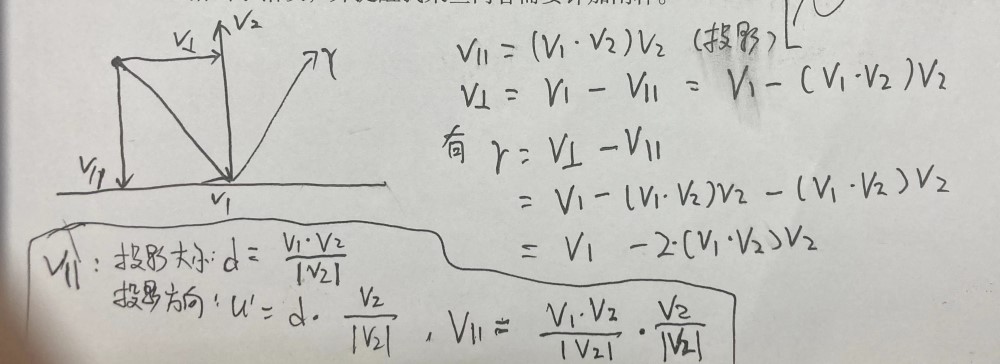 V₂
V⊥
r
V∥
V₁
V∥ = (V₁·V₂)V₂ (投影)
V⊥ = V₁ - V∥ = V₁ - (V₁·V₂)V₂
有 r = V⊥ - V∥
= V₁ - (V₁·V₂)V₂ - (V₁·V₂)V₂
= V₁ - 2·(V₁·V₂)V₂
V∥: 投影大小: d = V₁·V₂ / |V₂|
投影方向: u' = d · V₂ / |V₂| , V∥ = V₁·V₂ / |V₂| · V₂ / |V₂|